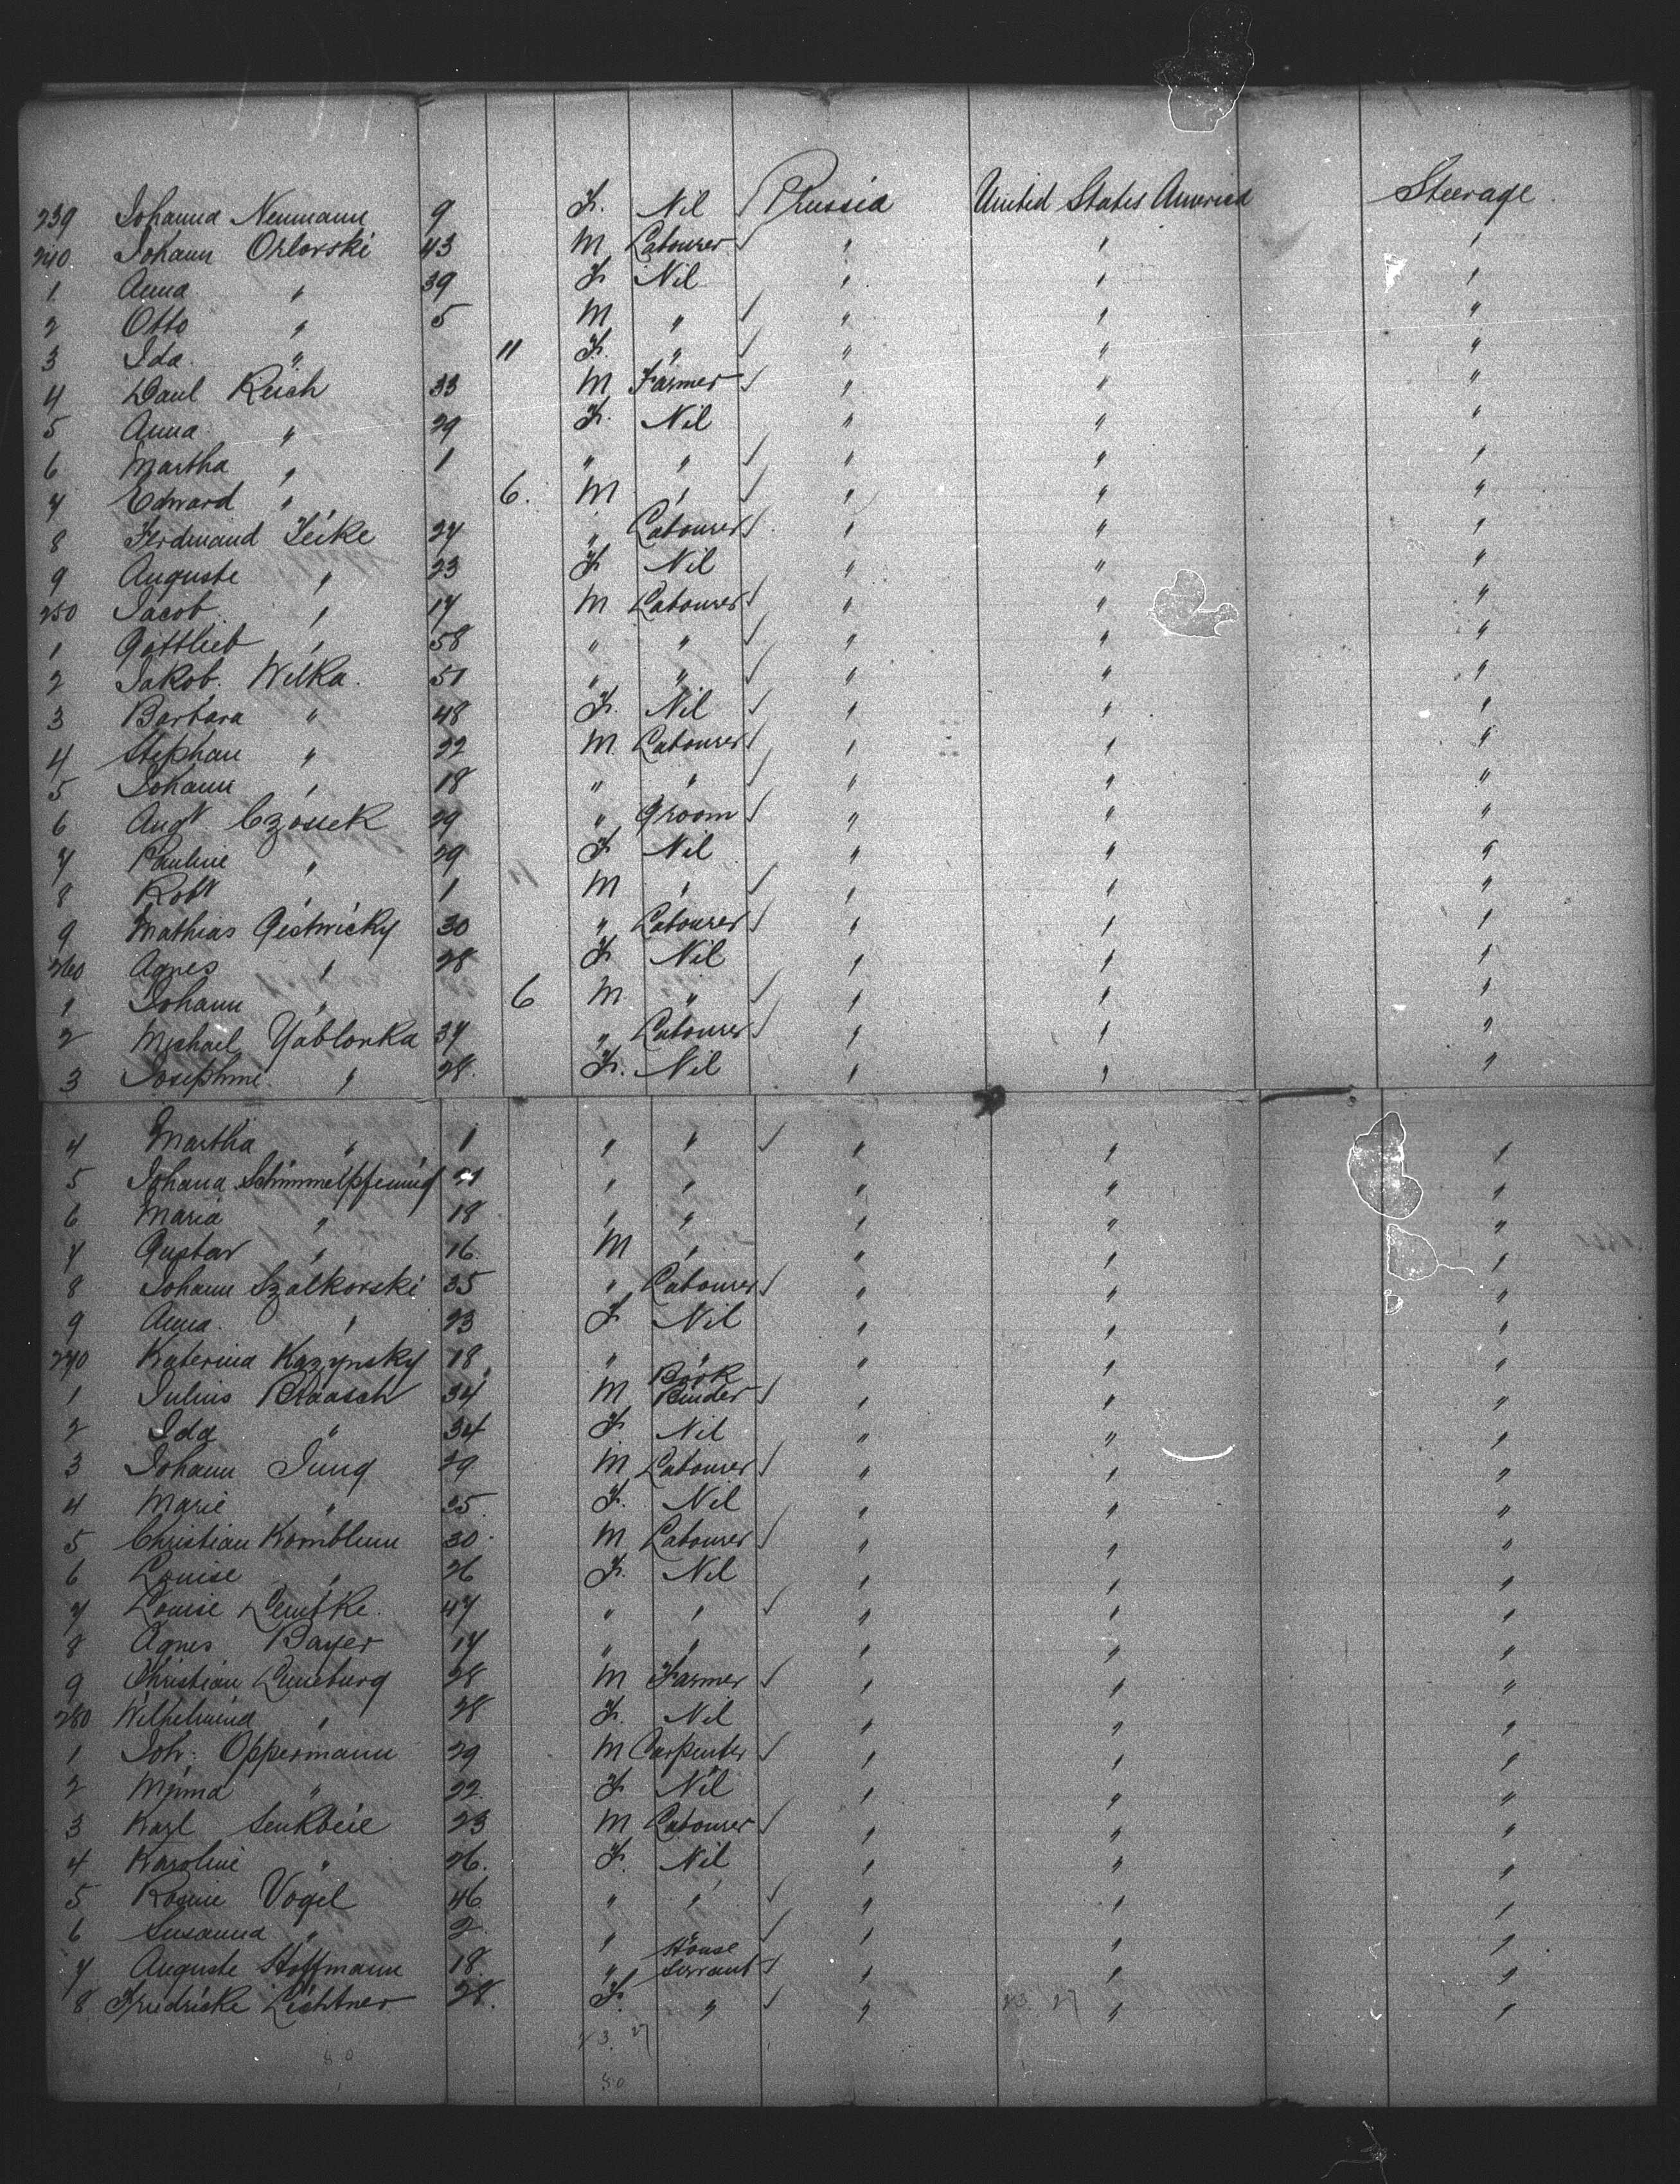 239 Johanna Neumann 9 F. Nil Prussia United States America Steerage
240 Johann Orlovski 43 M Labourer " " "
1 Anna " 39 F. Nil " " "
2 Otto " 5 M " " " "
3 Ida " 11 F. " " " "
4 Paul Reich 33 M Farmer " " "
5 Anna " 29 F. Nil " " "
6 Martha " 1 " " " " "
7 Edward " 6. M " " " "
8 Ferdinand Feike 24 " Labourer " " "
9 Auguste " 23 F Nil " " "
250 Jacob " 17 M Labourer " " "
1 Gottlieb " 58 " " " " "
2 Jakob Wilka 51 " " " " "
3 Barbara " 48 F. Nil " " "
4 Stephan " 22 M Labourer " " "
5 Johann " 18 " " " " "
6 Augt. Czossek 29 " Groom " " "
7 Pauline " 29 F Nil " " "
8 Robt " 1 M " " " "
9 Mathias Gistwicky 30 " Labourer " " "
260 Agnes " 28 F Nil " " "
1 Johann " 6 M " " " "
2 Michael Yablonka 34 " Labourer " " "
3 Josephine " 28. F. Nil " " "
4 Martha " 1 " " " " "
5 Johana Schimmelpfennig 21 " " " " "
6 Maria " 18 " " " " "
7 Gustav " 16. M " " " "
8 Johann Szalkovski 35 " Labourer " " "
9 Anna " 23 F Nil " " "
270 Katerina Kazynsky 18 " " " " "
1 Julius Blaasch 34 M Book Binder " " "
2 Ida " 34 F. Nil " " "
3 Johann Jung 29 M Labourer " " "
4 Marie " 25. F. Nil " " "
5 Christian Kornblum 30 M Labourer " " "
6 Louise " 26 F. Nil " " "
7 Louise Lembke 47 " " " " "
8 Agnes Bayer 17 " " " " "
9 Christian Luneburg 28 M Farmer " " "
280 Wilhelmina " 28 F. Nil " " "
1 Joh. Oppermann 29 M Carpenter " " "
2 Minna " 22. F. Nil " " "
3 Karl Senkbeie 23 M Labourer " " "
4 Karoline " 26. F. Nil " " "
5 Rosine Vogel 46 " " " " "
6 Susanna " 2. " " " " "
7 Auguste Hoffmann 18. " House Servant " " "
8 Friedricke Lichtner 28. F. " " " "